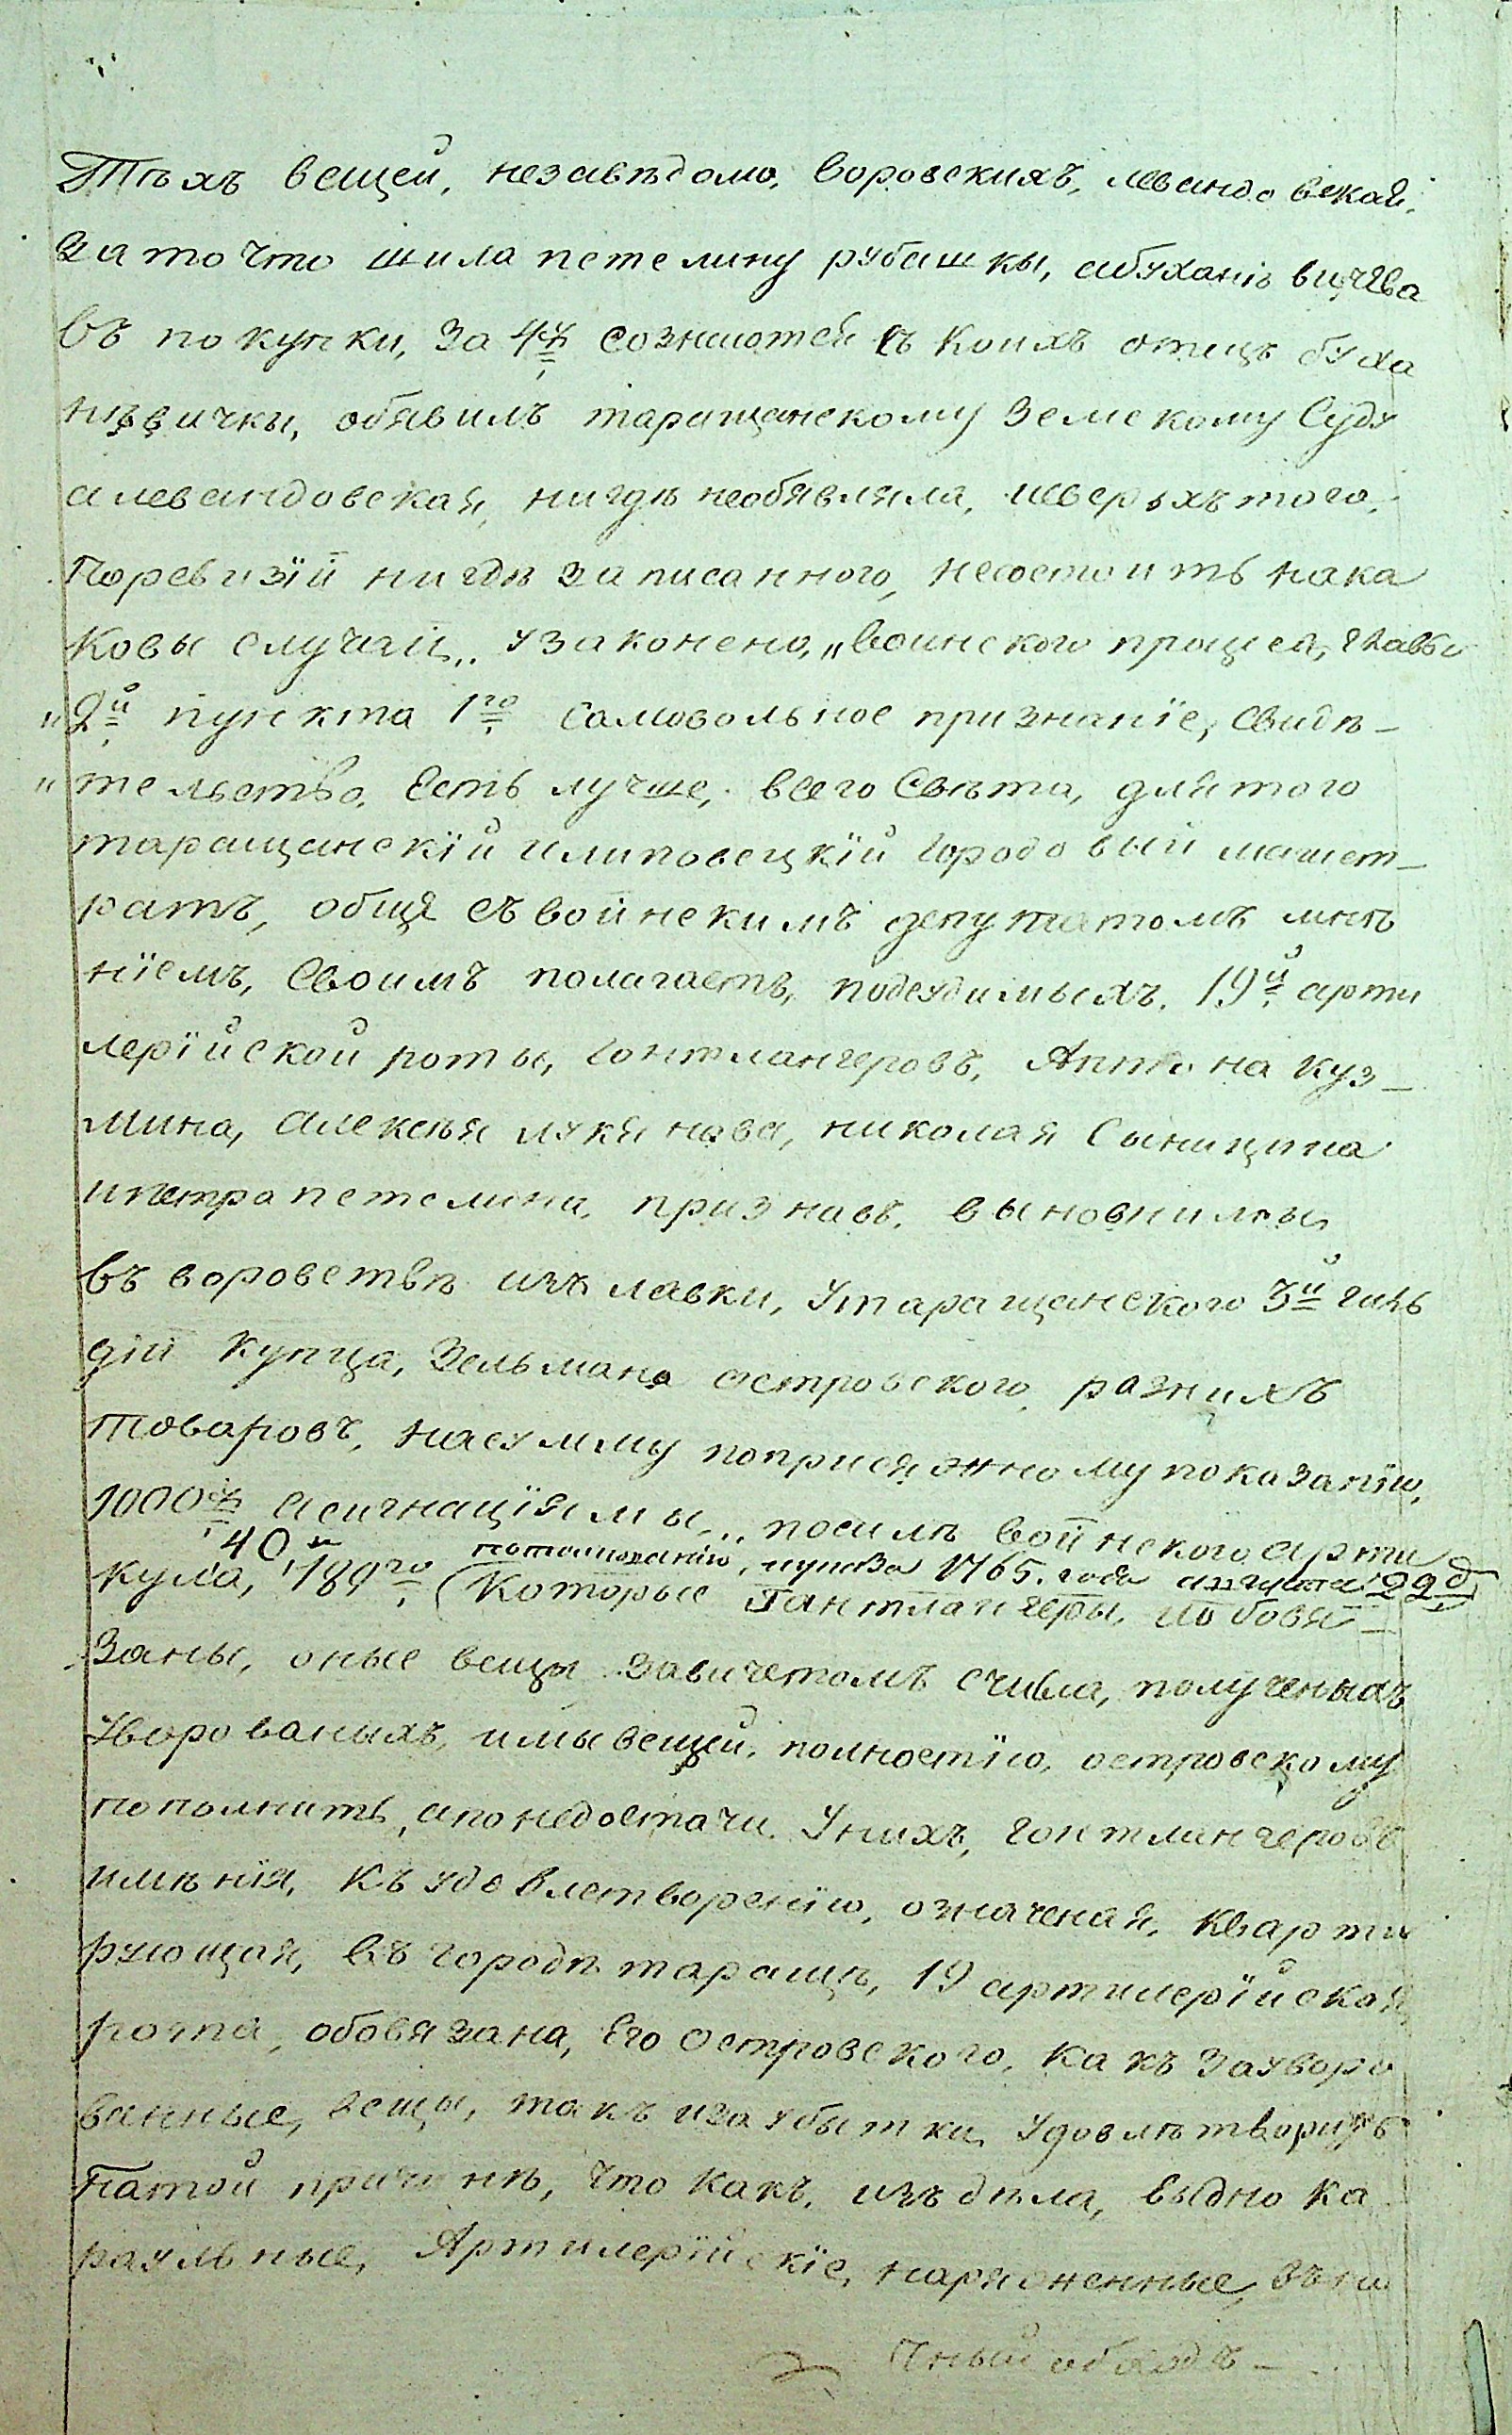 Тѣхъ вещей, незавѣдомо, воровскихъ, левандовскай,
за то что шила петелину рубашки, абуханѣвичева
въ покупки, за 4 р сознаютей съ коихъ отецъ буха
нѣвички, обявилъ таращанскому Земскому Суду
алевандовская, нигдѣ необявляла, исверхъ того,
поревизїй нигдѣ записанного, несостоитъ нака
ковы случаи, узаконено, „воинского процеса, главы
„2й пункта 1го самовольное признанїе, свидѣ–
„тельство, Есть лучше, всего Свѣта, для того
таращанскїй илиповецкїй городовый магист–
ратъ, обще съ войнскимъ депутатомъ мнѣ
нїемъ, Своимъ полагаетъ, подсудимыхъ, 19й арти
лерїйской роты, гонтлангеровъ, Антона Куз–
мина, алексѣя лукянова, николая Сыницина
ипетра петелина, признавъ, выновными
въ воровствѣ изъ лавки, утаращанского 3й гиль
дїй купца, Зельмана островского, разнихъ
товаровъ, насумму поприсяжному показанїю,
1000 р асигнацїямы, посилѣ войнского арти
кула, 189го (Которые гантлангеры, иобовя–
40 потолкованїю, иуказа 1765. года августа 22 д
заны, оные вещы завичетомъ счисла, полученыхъ
уворованыхъ, имы вещей, полностїю, островскому
пополнить, апонедостачи унихъ, гонтлангеровъ
имѣнїя, къ удовлетворенїю, означеная, кварти
рующая, въ городѣ таращѣ, 19 артилерїйская
рота, обовязана, Его островского, какъ зауворо
ванные, вещы, такъ иза убытки, удовлѣтворить
патой причинѣ, что какъ, изъ дѣла, выдно ка
раульные, Артилерїйскїе, наряженные, въ но
чный обходъ –